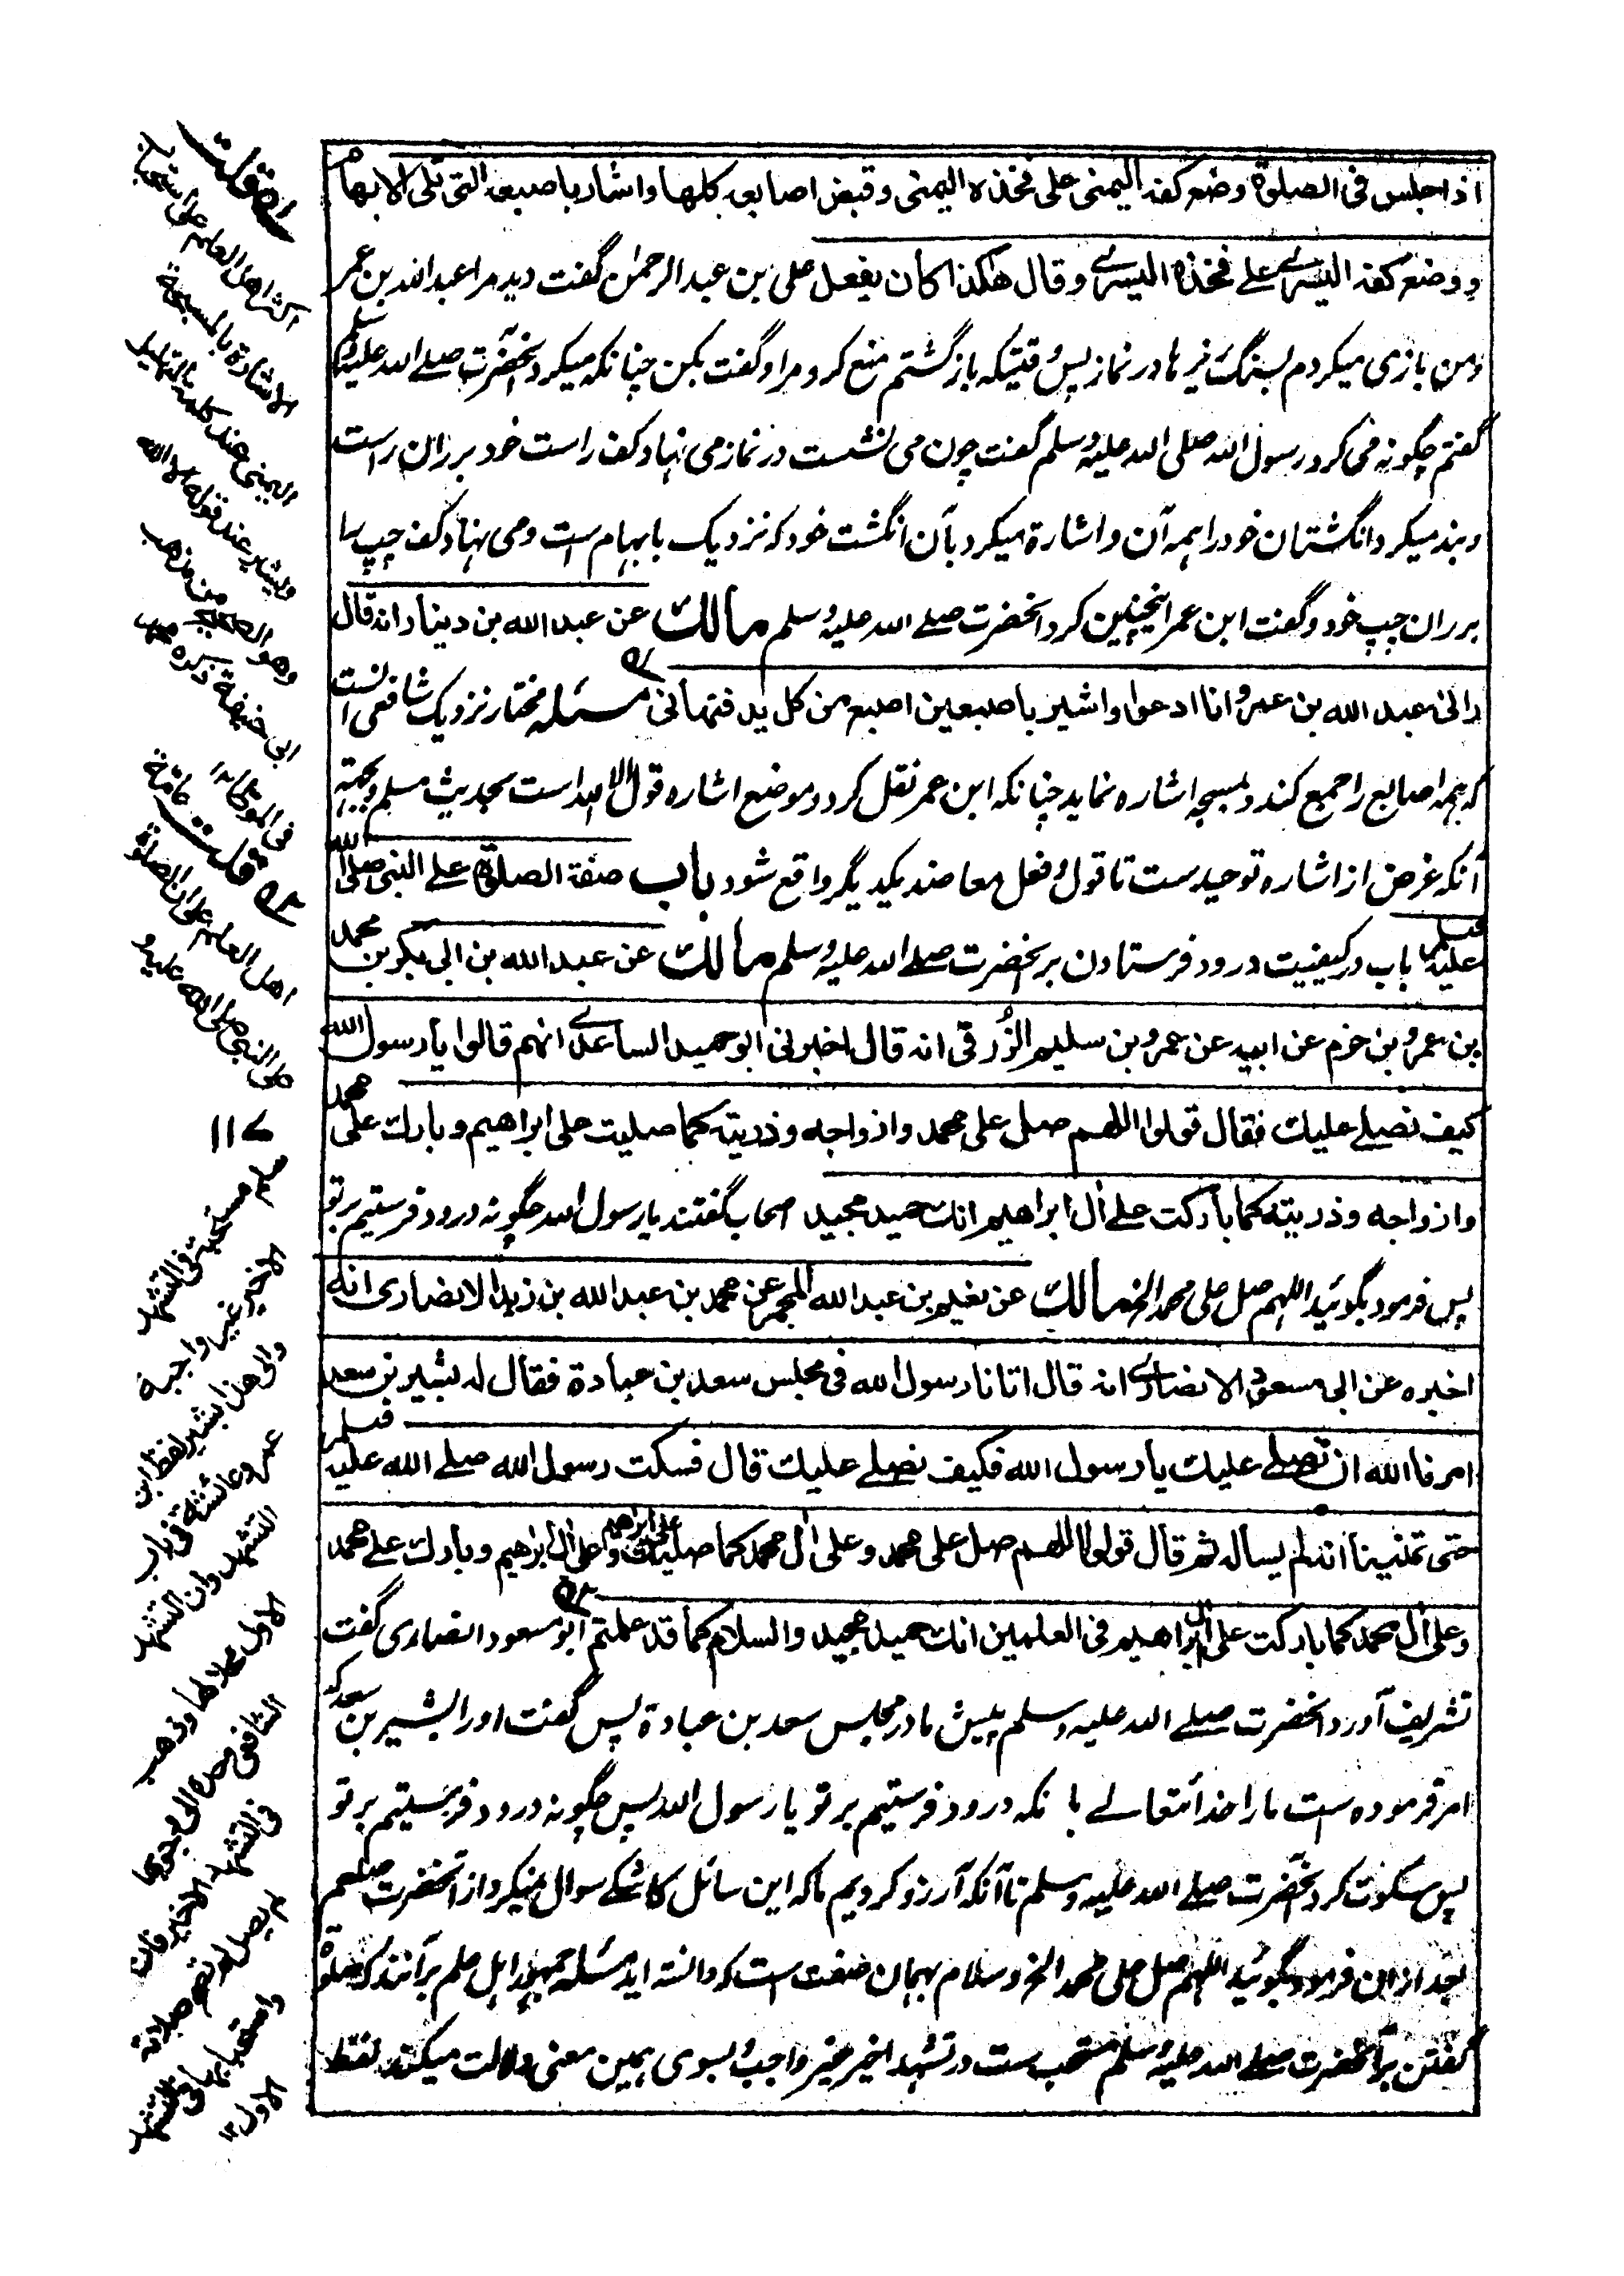 اذا جلس فى الصلوة وضع كفه اليمنى على فخذه اليمنى وقبض اصابعه كلها واشار باصبعه التى تلى الابهام
ووضع كفه اليسرى على فخذه اليسرى وقال هكذا كان يفعل على بن عبد الرحمن گفت دید مرا عبد الله بن عمر
ومن بازی میکردم بسنگ ریزها در نماز پس وقتیکه بازگشتم منع کرد مرا وگفت بکن چنانکه میکرد آنحضرت صلے الله علیه وسلم
گفتم چگونه می کرد رسول الله صلی الله علیه وسلم گفت چون می نشست در نماز می نهاد کف راست خود بر ران راست
وبند میکرد انگشتان خود را همه آن واشارة میکرد بآن انگشت خود که نزدیک بابهام است ومی نهاد کف چپ را
بر ران چپ خود وگفت ابن عمر اینچنین کرد آنحضرت صلے الله علیه وسلم مالك عن عبد الله بن دينار انه قال
رانى عبد الله بن عمر وانا ادعو واشير باصبعين اصبع من كل يد فنهانى مسئله مختار نزدیک شافعی آنست
که همه اصابع را جمع کند وبمسبحه اشاره نماید چنانکه ابن عمر نقل کرد وموضع اشاره قول الا الله است بحدیث مسلم وبجهة
آنکه غرض از اشاره توحید ست تا قول وفعل معاضد یکدیگر واقع شود باب صفة الصلوة على النبى صلى الله
عليه وسلم باب در کیفیت درود فرستادن بر آنحضرت صلے الله علیه وسلم مالك عن عبد الله بن ابى بكر بن محمد
بن عمرو بن حزم عن ابيه عن عمرو بن سليم الزرقى انه قال اخبرنى ابو حميد الساعدى انهم قالوا يا رسول الله
كيف نصلے عليك فقال قولوا اللهم صل على محمد وازواجه وذريته كما صليت على ابراهيم وبارك على محمد
وازواجه وذريته كما باركت على ال ابراهيم انك حميد مجيد اصحاب گفتند یا رسول الله چگونه درود فرستیم بر تو
پس فرمود بگوئید اللهم صل علی محمد الخ مالك عن نعيم بن عبد الله المجمر عن محمد بن عبد الله بن زيد الانصارى انه
اخبره عن ابى مسعود الانصارى انه قال اتانا رسول الله فى مجلس سعد بن عبادة فقال له بشير بن سعد
امرنا الله ان نصلے عليك يا رسول الله فكيف نصلے عليك قال فسكت رسول الله صلے الله عليه وسلم
حتى تمنينا انه لم يساله ثم قال قولوا اللهم صل على محمد وعلى ال محمد كما صليت على ابراهيم وعلى ال ابراهيم وبارك على محمد
وعلى ال محمد كما باركت على ال ابراهيم فى العلمين انك حميد مجيد والسلام كما قد علمتم ابو مسعود انصاری گفت
تشریف آورد آنحضرت صلے الله علیه وسلم پیش ما در مجلس سعد بن عبادة پس گفت او را بشیر بن سعد که
امر فرموده ست ما را خدائتعالے بآنکه درود فرستیم بر تو یا رسول الله پس چگونه درود فرستیم بر تو
پس سکوت کرد آنحضرت صلے الله علیه وسلم تا آنکه آرزو کردیم ما که این سائل کاشکے سوال نمیکرد از آنحضرت صلعم
بعد ازان فرمود بگوئید اللهم صل علی محمد الخ وسلام بهمان صفت ست که دانسته اید مسئله جمهور اهل علم برآنند که صلوة
گفتن بر آنحضرت صلے الله علیه وسلم مستحب ست در تشهد اخیر غیر واجب وبسوی همین معنی دلالت میکند لفظ
قلت
اكثر اهل العلم على استحباب
الاشارة بالمسبحة
اليمنى عند كلمة التهليل
ويشير عند قوله الا الله
وهو الصحيح من مذهب
ابى حنيفة ذكره محمد
فى الموطا
قلت عامة
اهل العلم على ان الصلوة
على النبى صلى الله عليه و
١١٧
سلم مستحبة فى التشهد
الاخير غير واجبة
والى هذا يشير لفظ ابن
عمر وعائشة فى باب
التشهد وان التشهد
الاول محلا لها وذهب
الشافعى وحده الى وجوبها
فى التشهد الاخير فان
لم يصل لم تصح صلاته
واستحبابها فى التشهد
الاول ١٢